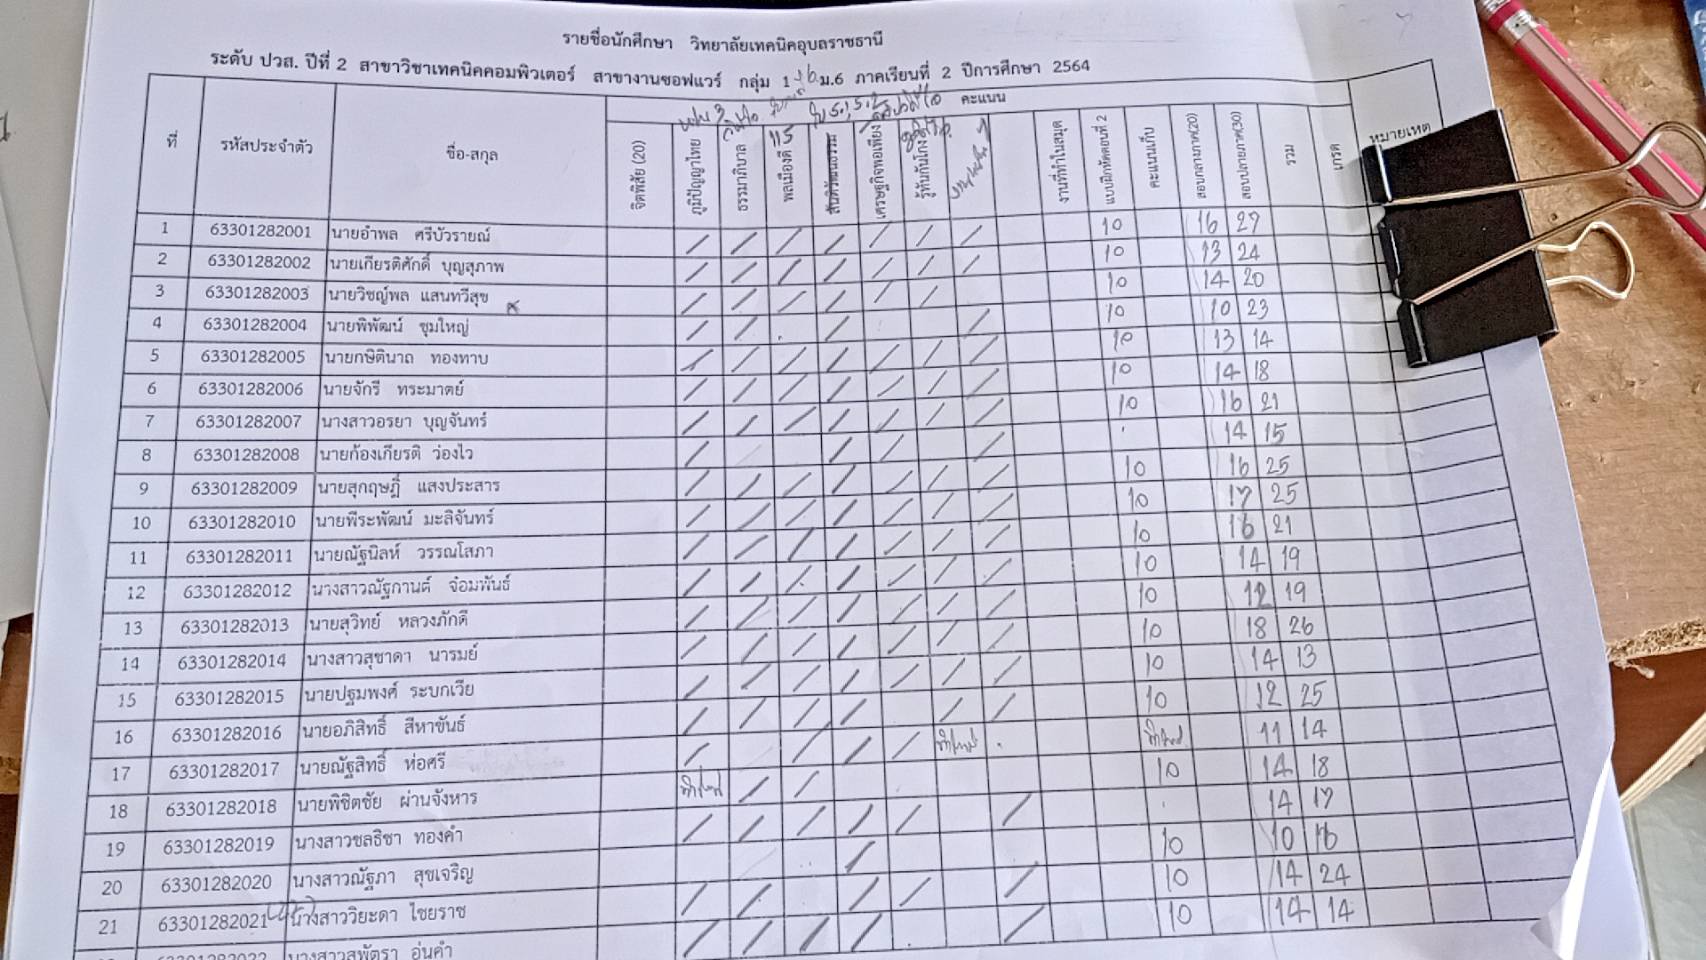 รายชื่อนักศึกษา วิทยาลัยเทคนิคอุบลราชธานี
ระดับ ปวส. ปีที่ 2 สาขาวิชาเทคนิคคอมพิวเตอร์ สาขางานซอฟแวร์ กลุ่ม 1 ม.6 ภาคเรียนที่ 2 ปีการศึกษา 2564
ที่ รหัสประจำตัว ชื่อ-สกุล คะแนน หมายเหตุ
จิตพิสัย (20) ภูมิปัญญาไทย ธรรมาภิบาล พลเมืองดี สันติวัฒนธรรม เศรษฐกิจพอเพียง รู้ทันกันโกง งานที่ทำในสมุด แบบฝึกหัดตอนที่ 2 คะแนนเก็บ สอบกลางภาค(20) สอบปลายภาค(30) รวม เกรด
1 63301282001 นายอำพล ศรีบัวรายณ์ / / / / / / / 10 16 27
2 63301282002 นายเกียรติศักดิ์ บุญสุภาพ / / / / / / / 10 13 24
3 63301282003 นายวิชญ์พล แสนทวีสุข / / / / / / 10 14 20
4 63301282004 นายพิพัฒน์ ชุมใหญ่ / / / / 10 10 23
5 63301282005 นายกษิตินาถ ทองทาบ / / / / / / / 10 13 14
6 63301282006 นายจักรี ทระมาตย์ / / / / / / / 10 14 18
7 63301282007 นางสาวอรยา บุญจันทร์ / / / / / / / 10 16 21
8 63301282008 นายก้องเกียรติ ว่องไว / / / / 14 15
9 63301282009 นายสุกฤษฎิ์ แสงประสาร / / / / / / / 10 16 25
10 63301282010 นายพีระพัฒน์ มะลิจันทร์ / / / / / / / 10 17 25
11 63301282011 นายณัฐนิลห์ วรรณโสภา / / / / / / / 10 16 21
12 63301282012 นางสาวณัฐกานต์ จ๋อมพันธ์ / / / / / / / 10 14 19
13 63301282013 นายสุวิทย์ หลวงภักดี / / / / / / / 10 12 19
14 63301282014 นางสาวสุชาดา นารมย์ / / / / / / / 10 18 26
15 63301282015 นายปฐมพงศ์ ระบกเวีย / / / / / / / 10 14 13
16 63301282016 นายอภิสิทธิ์ สีหาขันธ์ / / / / / / 10 12 25
17 63301282017 นายณัฐสิทธิ์ ห่อศรี / / / / 11 14
18 63301282018 นายพิชิตชัย ผ่านจังหาร / / 10 14 18
19 63301282019 นางสาวชลธิชา ทองคำ / / / / / / 14 17
20 63301282020 นางสาวณัฐภา สุขเจริญ / 10 10 16
21 63301282021 นางสาววิยะดา ไชยราช / / / / / 10 14 24
63301282022 นางสาวสุพัตรา อุ่นคำ / / / / / 10 14 14